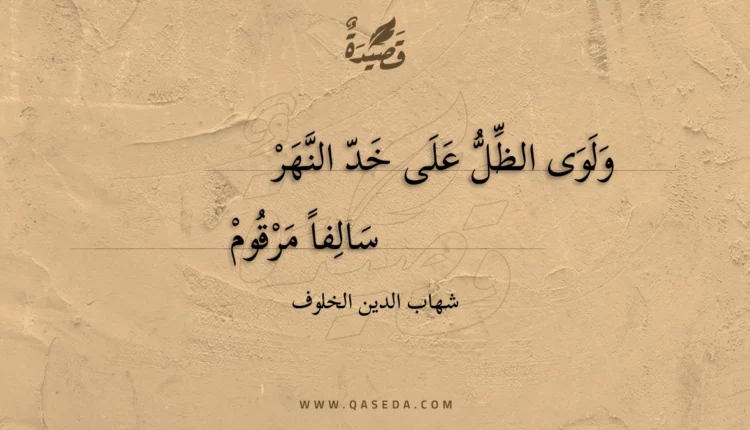 قَصِيْدَةٌ
وَلَوَى الظِّلُّ عَلَى خَدّ النَّهَرْ
سَالِفاً مَرْقُومْ
شهاب الدين الخلوف
WWW.QASEDA.COM